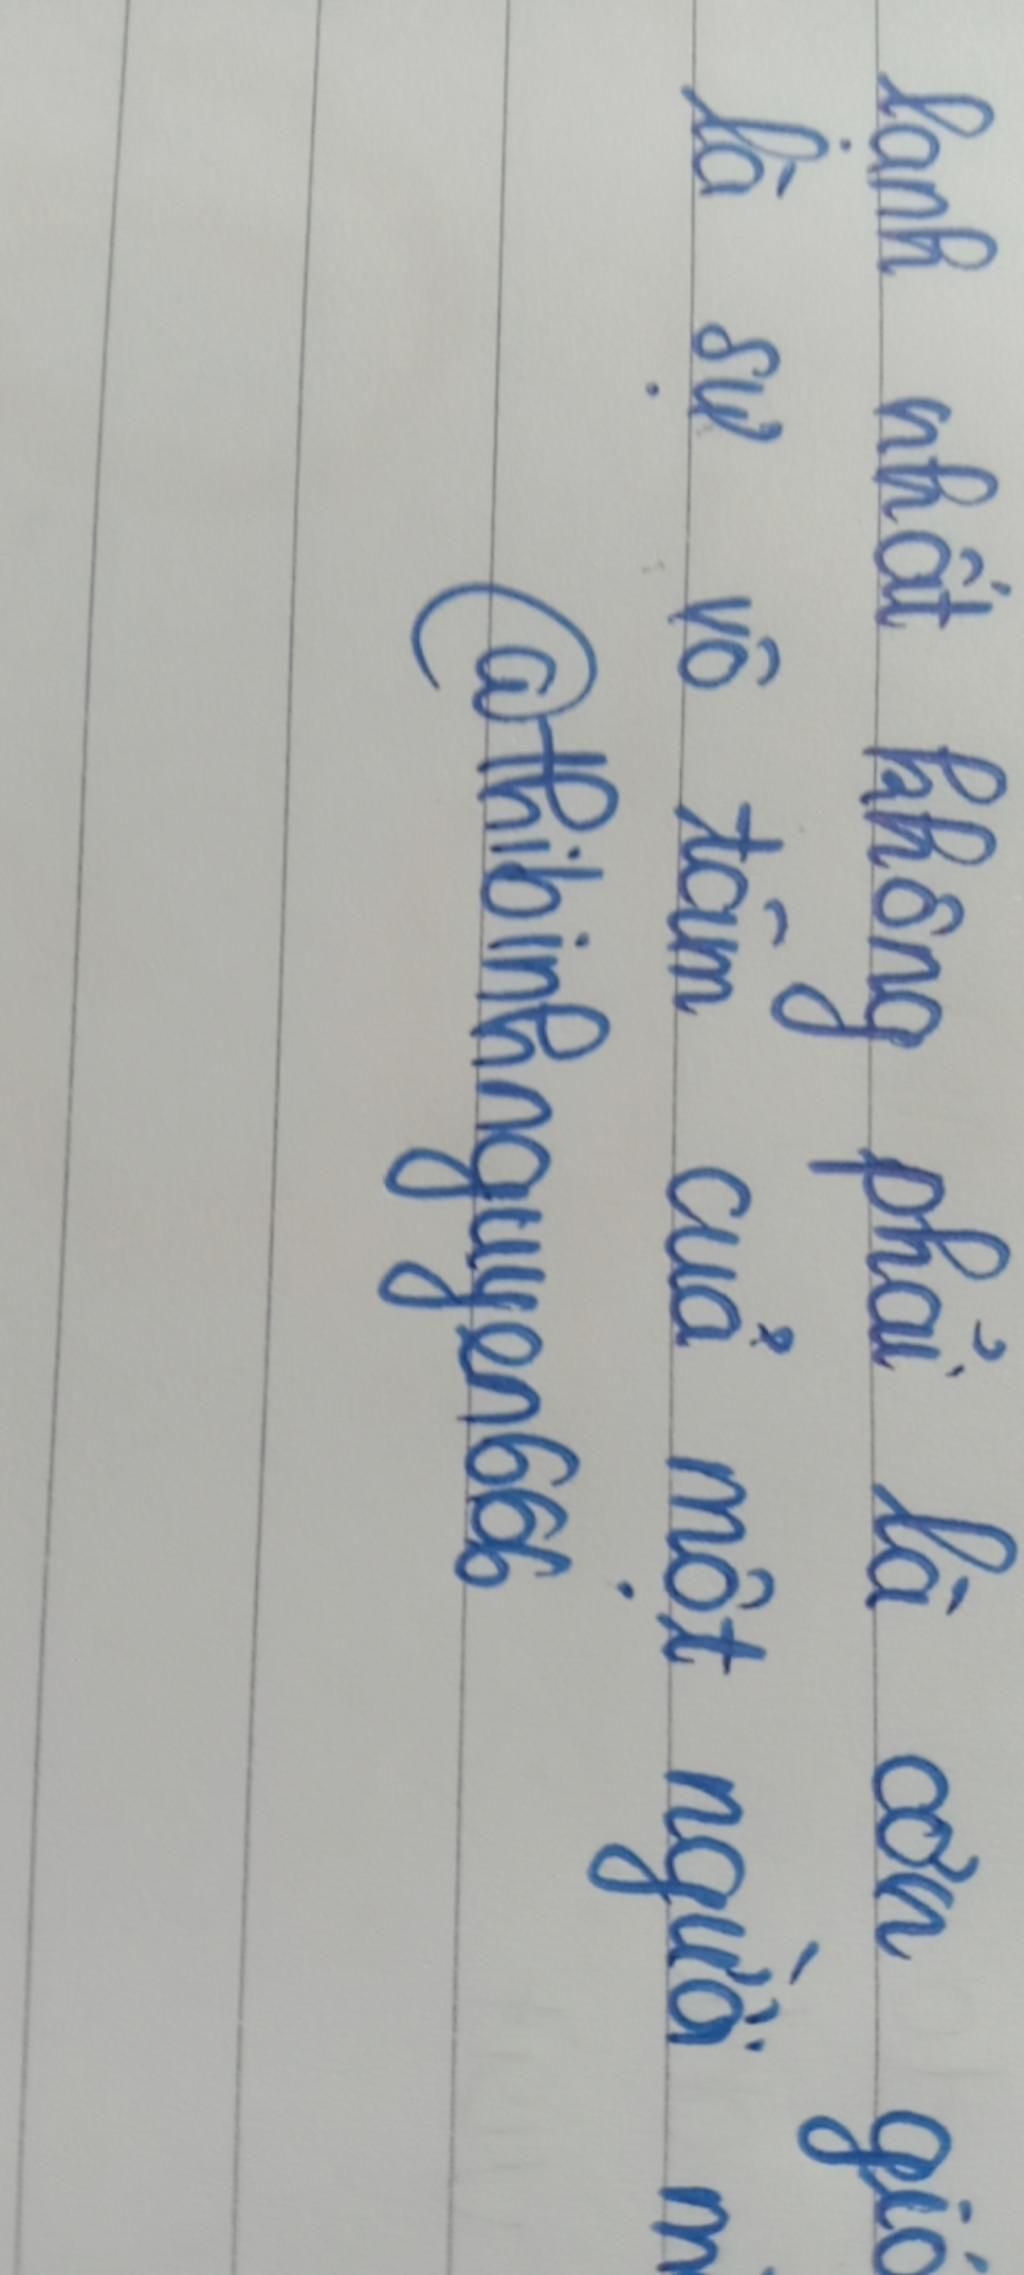 lạnh nhất không phải là cơn gió
là sự vô tâm của một người
@thibinhnguyen666